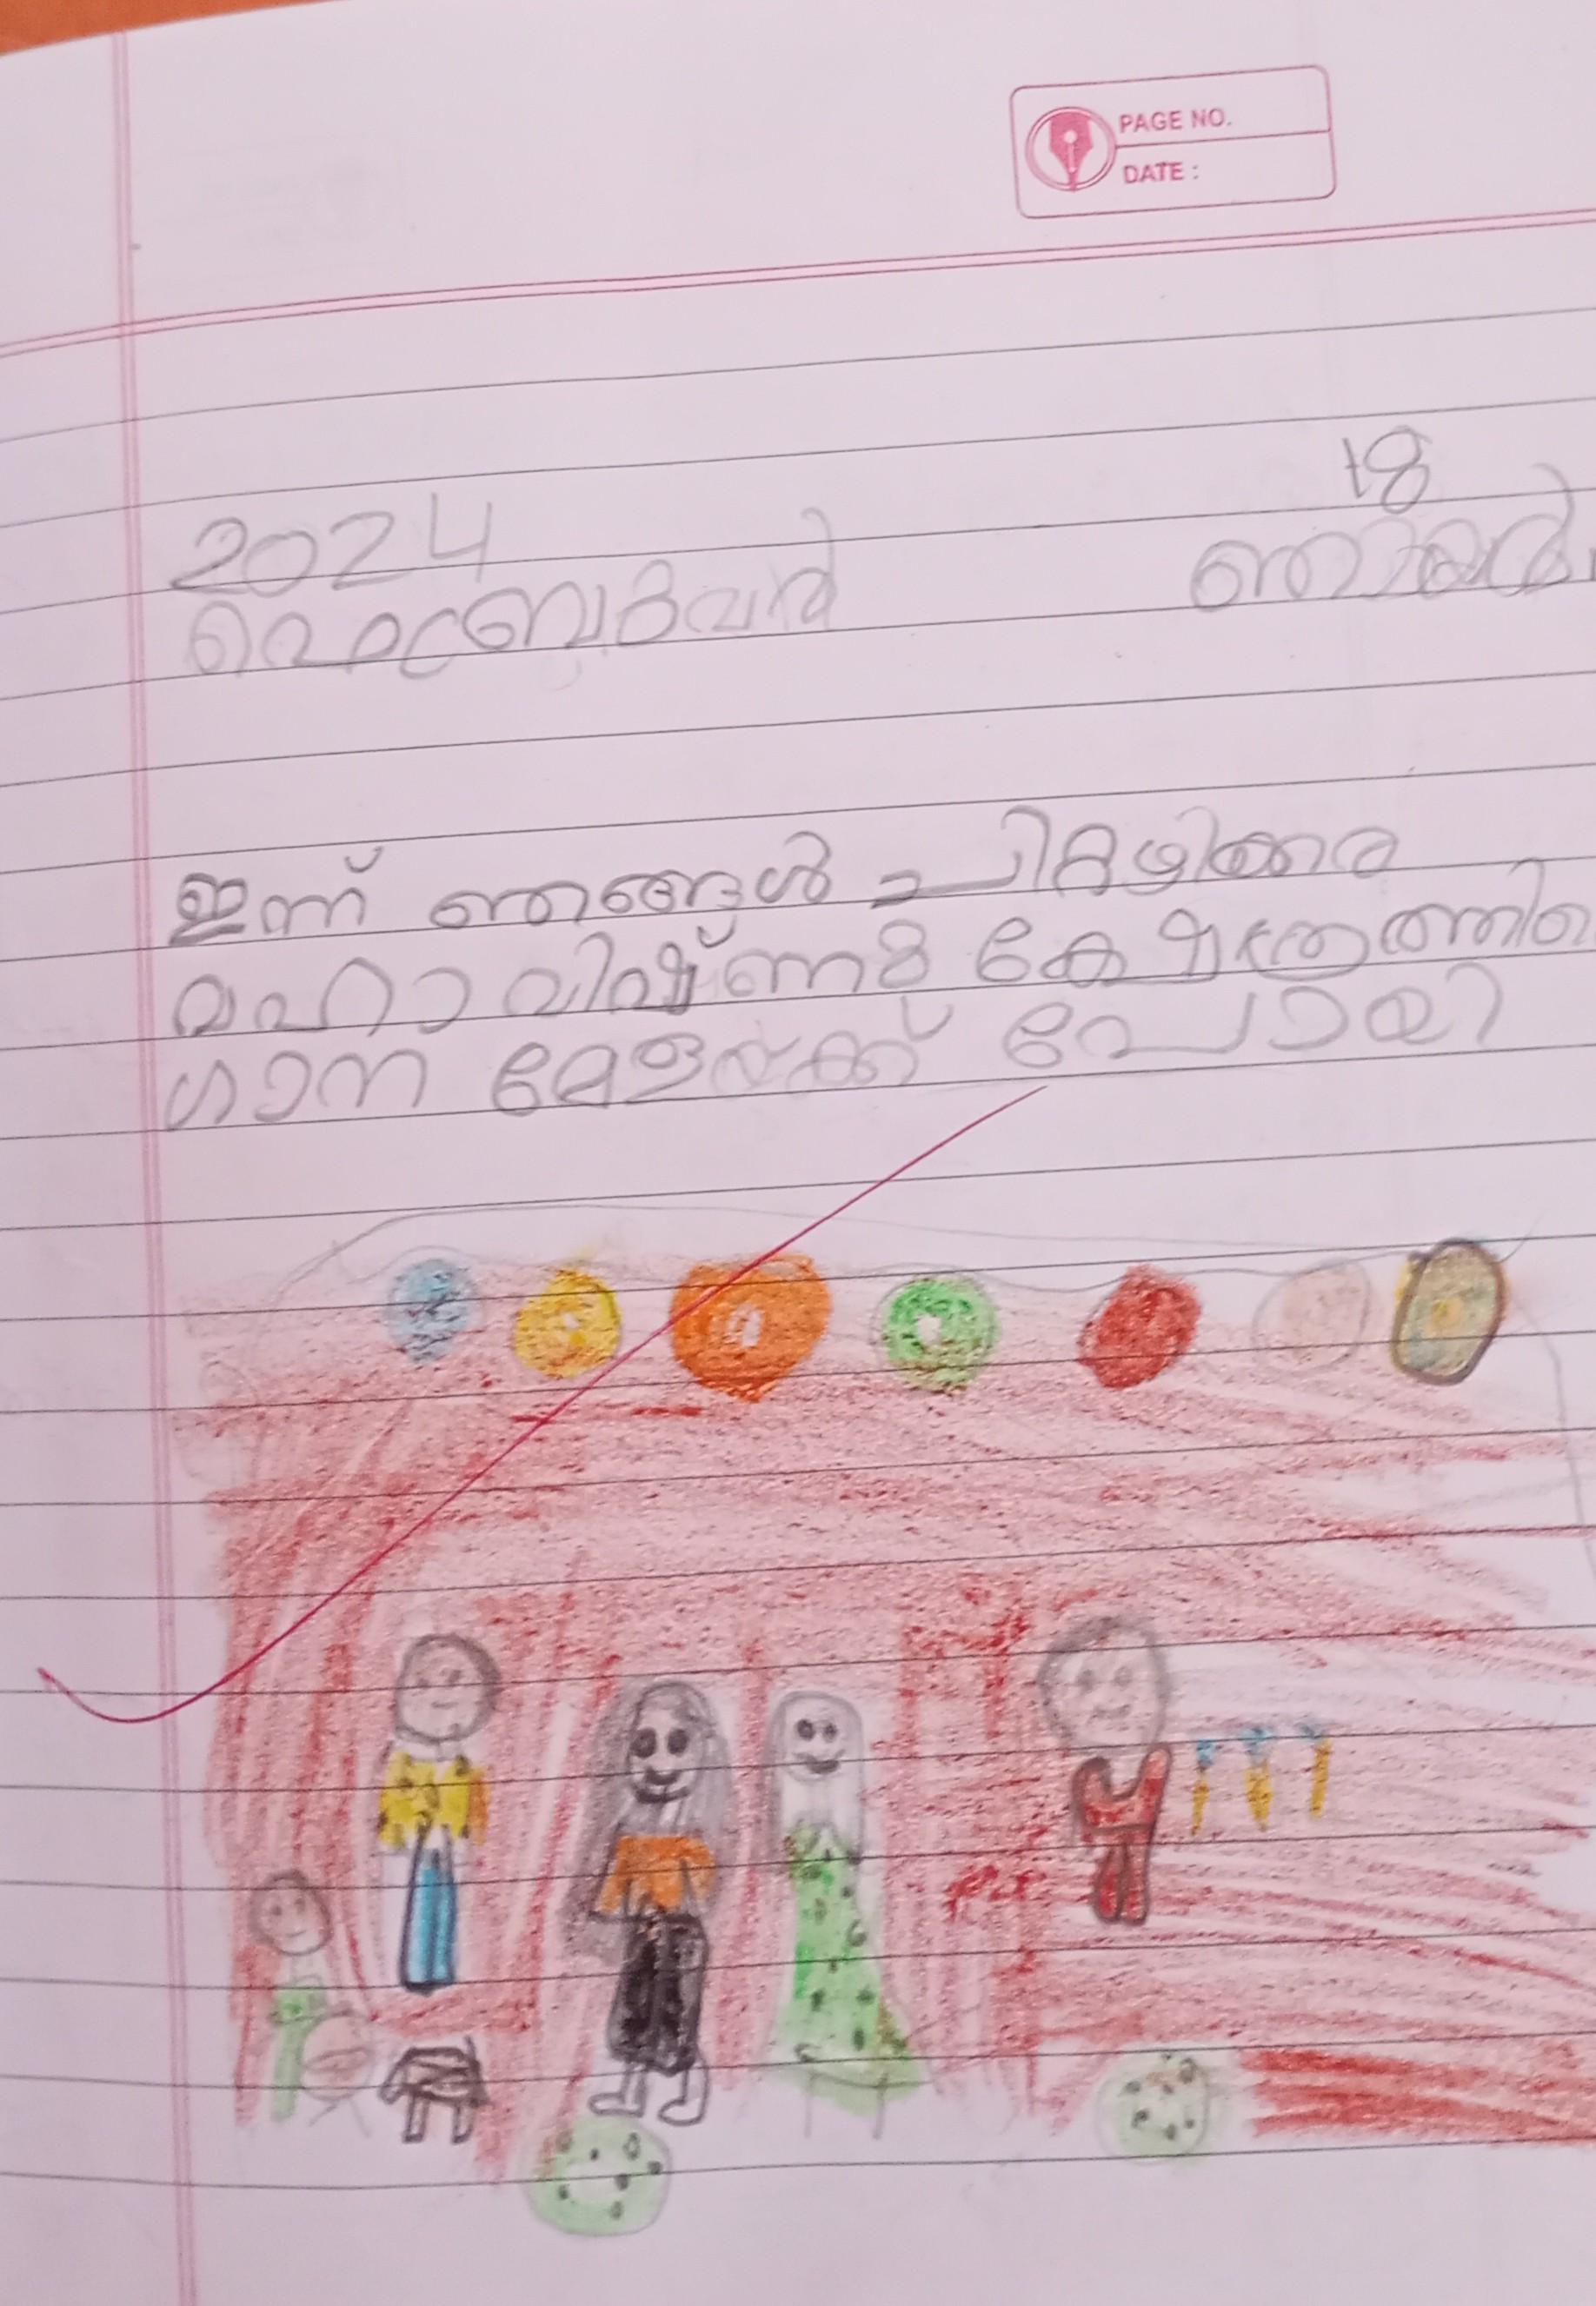 PAGE NO.
DATE :
18
2024
ഫെബ്രുവരി ഞായർ
ഇന്ന് ഞങ്ങൾ ചിറ്റഴിക്കര
മഹാ വിഷ്ണു ക്ഷേത്രത്തിലെ
ഗാന മേളയ്ക്ക് പോയി